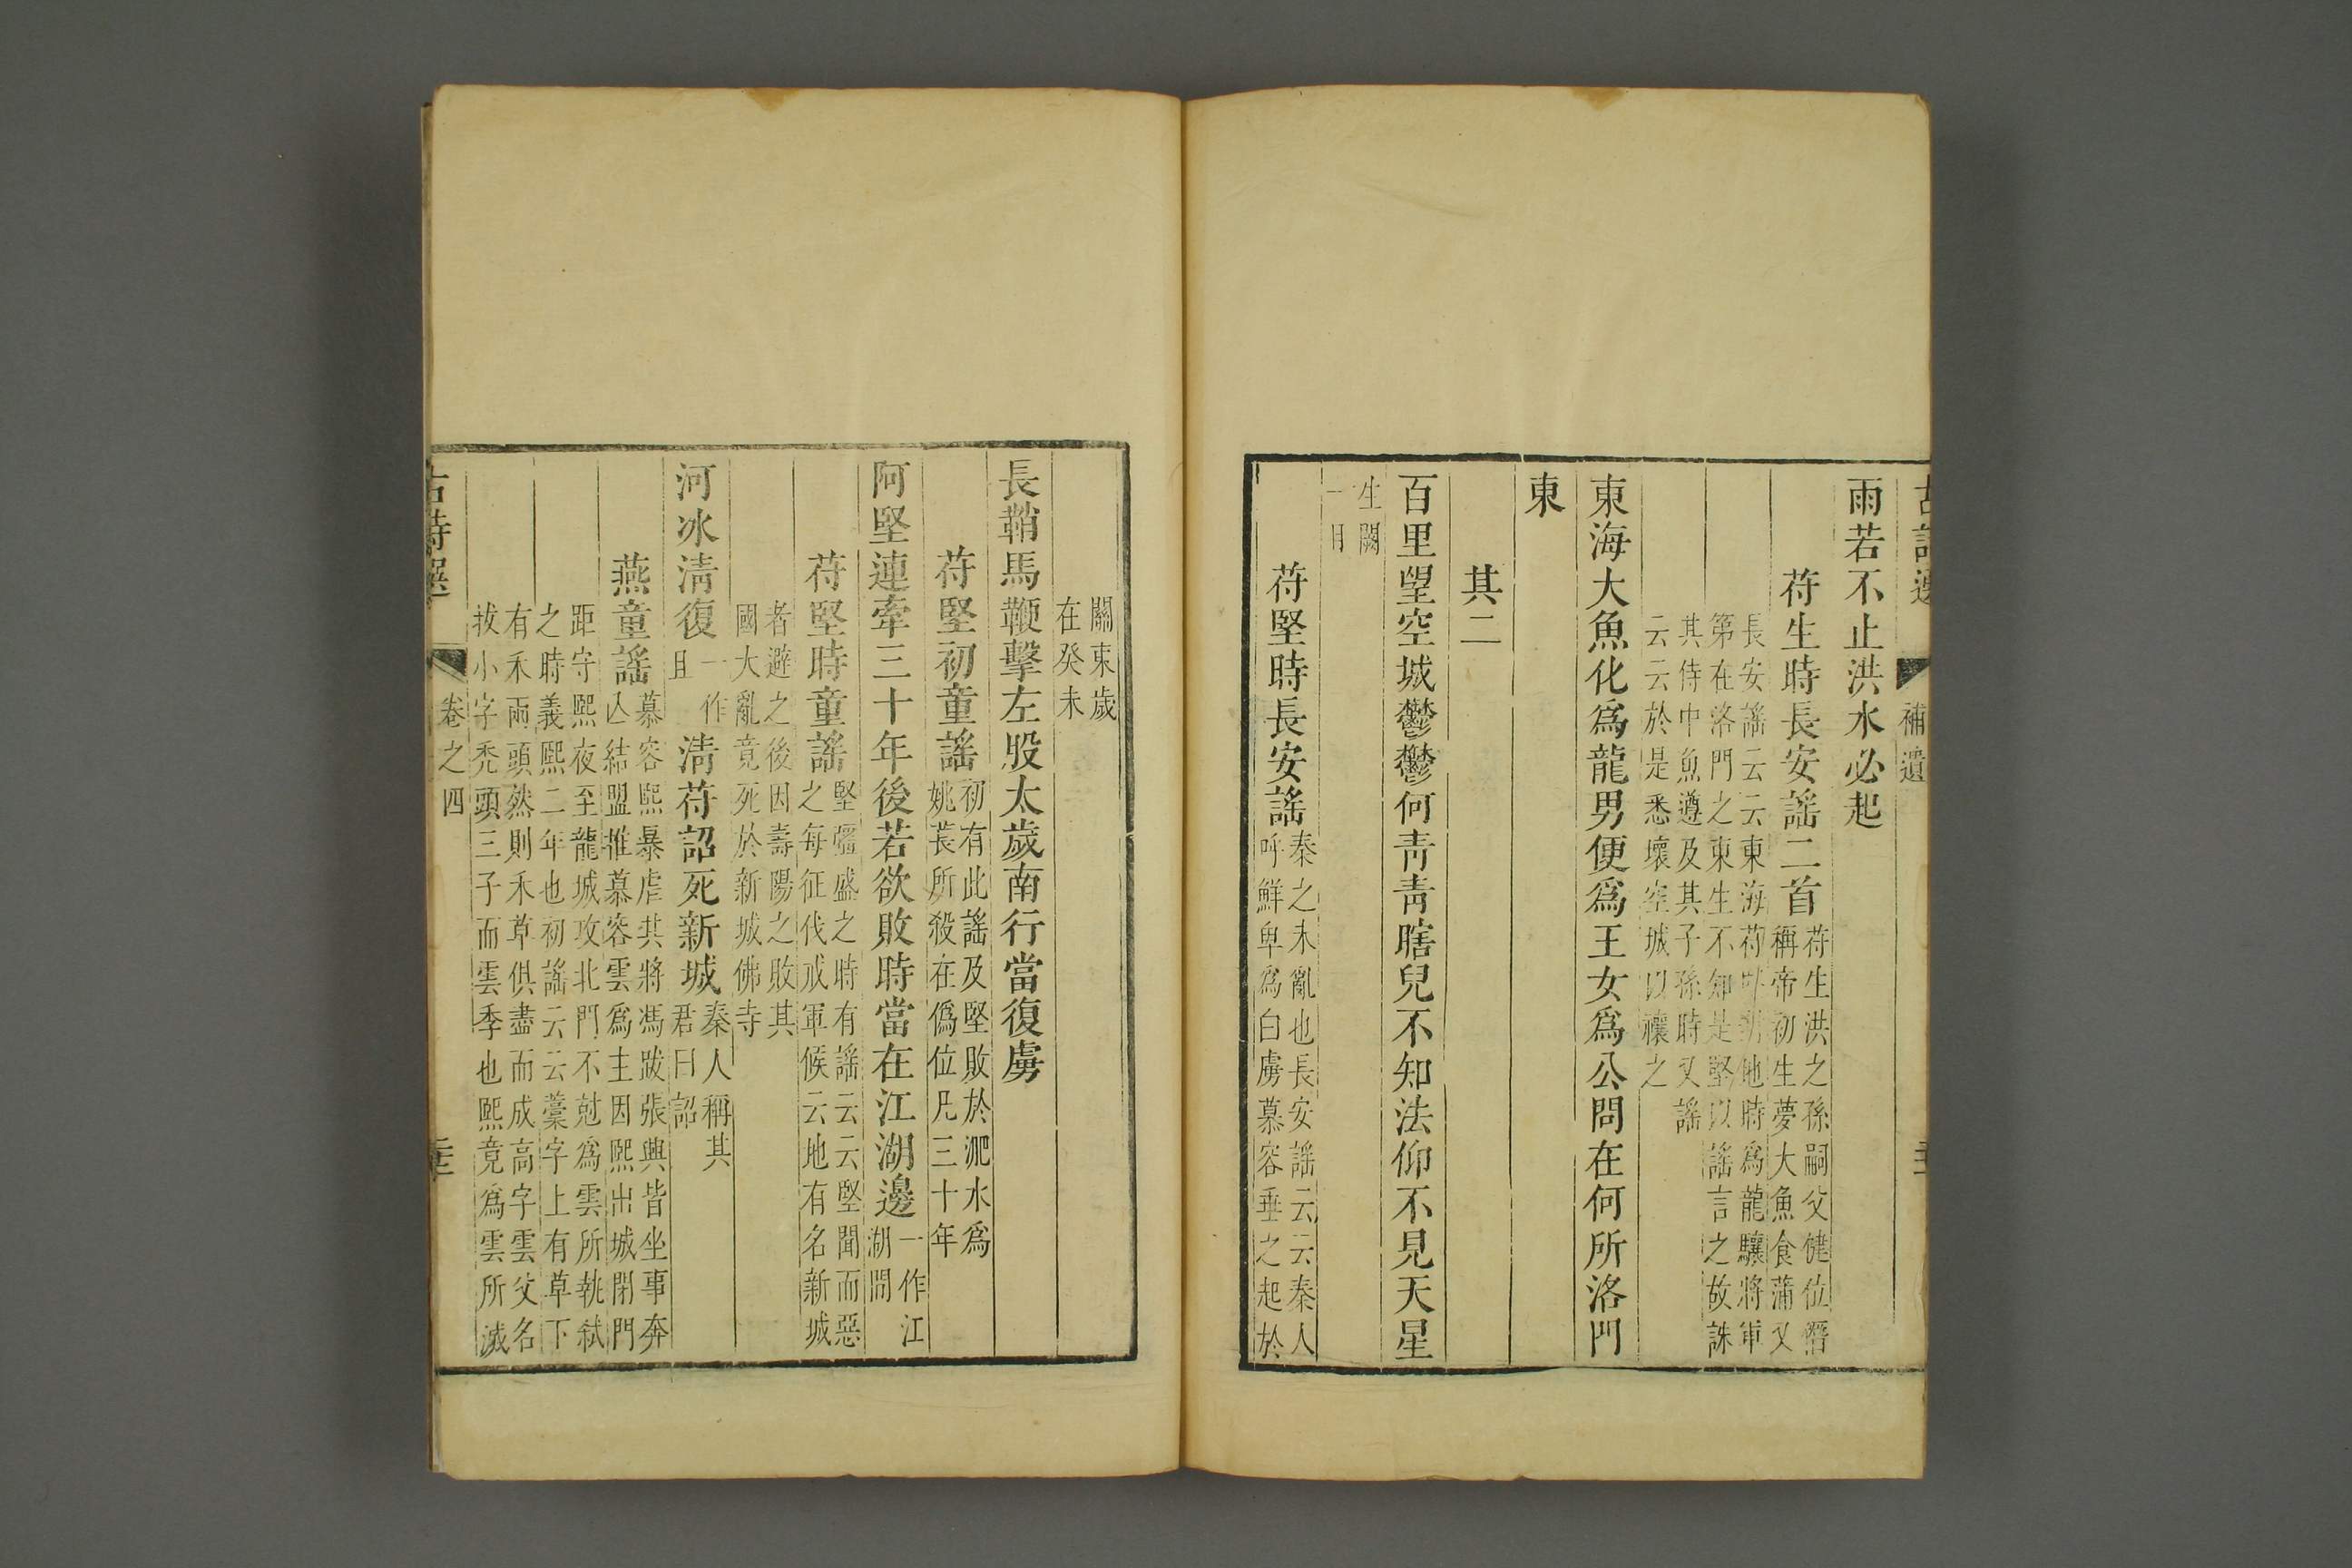 補遺
雨若不止洪水必起
苻生時長安謠二首
苻生洪之孫嗣父健位僭
稱帝初生夢大魚食蒲又
長安謠云云東海苻
時爲龍驤將軍
第在洛門之東生不知是堅以謠言之故誅
其侍中魚遵及其子孫時又謠
云云於是悉壞空城以禳之
東海大魚化爲龍男便爲王女爲公問在何所洛門
東
其二
百里望空城鬱鬱何靑靑瞎兒不知法仰不見天星
生闕
一目
苻堅時長安謠
秦之未亂也長安謠云云秦人
呼鮮卑爲白虜慕容垂之起於
關東歲
在癸未
長鞘馬鞭擊左股太歲南行當復虜
苻堅初童謠
初有此謠及堅敗於淝水爲
姚萇所殺在僞位凡三十年
阿堅連牽三十年後若欲敗時當在江湖邊
一作江
湖間
苻堅時童謠
堅彊盛之時有謠云云堅聞而惡
之每征伐戒軍候云地有名新城
者避之後因壽陽之敗其
國大亂竟死於新城佛寺
河冰淸復
一作
且
淸苻詔死新城
秦人稱其
君曰詔
燕童謠
慕容熙暴虐其將馮跋張興皆坐事奔
亾結盟推慕容雲爲主因熙出城閉門
距守熙夜至龍城攻北門不尅爲雲所執弒
之時義熙二年也初謠云云藁字上有草下
有禾兩頭然則禾草俱盡而成高字雲父名
拔小字禿頭三子而雲季也熙竟爲雲所滅
古詩選
卷之四